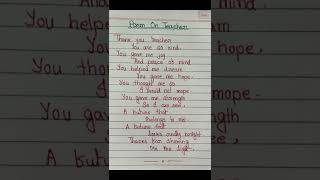 Poem On Teacher
Thank you teacher
You are so kind.
You gave me joy
And peace of mind
You helped me dream
You gave me hope.
You taught me so
I would not mope
You gave me strength
So I can see,
A future that
belongs to me.
A future that
looks really bright
Thanks for shining
me the light.